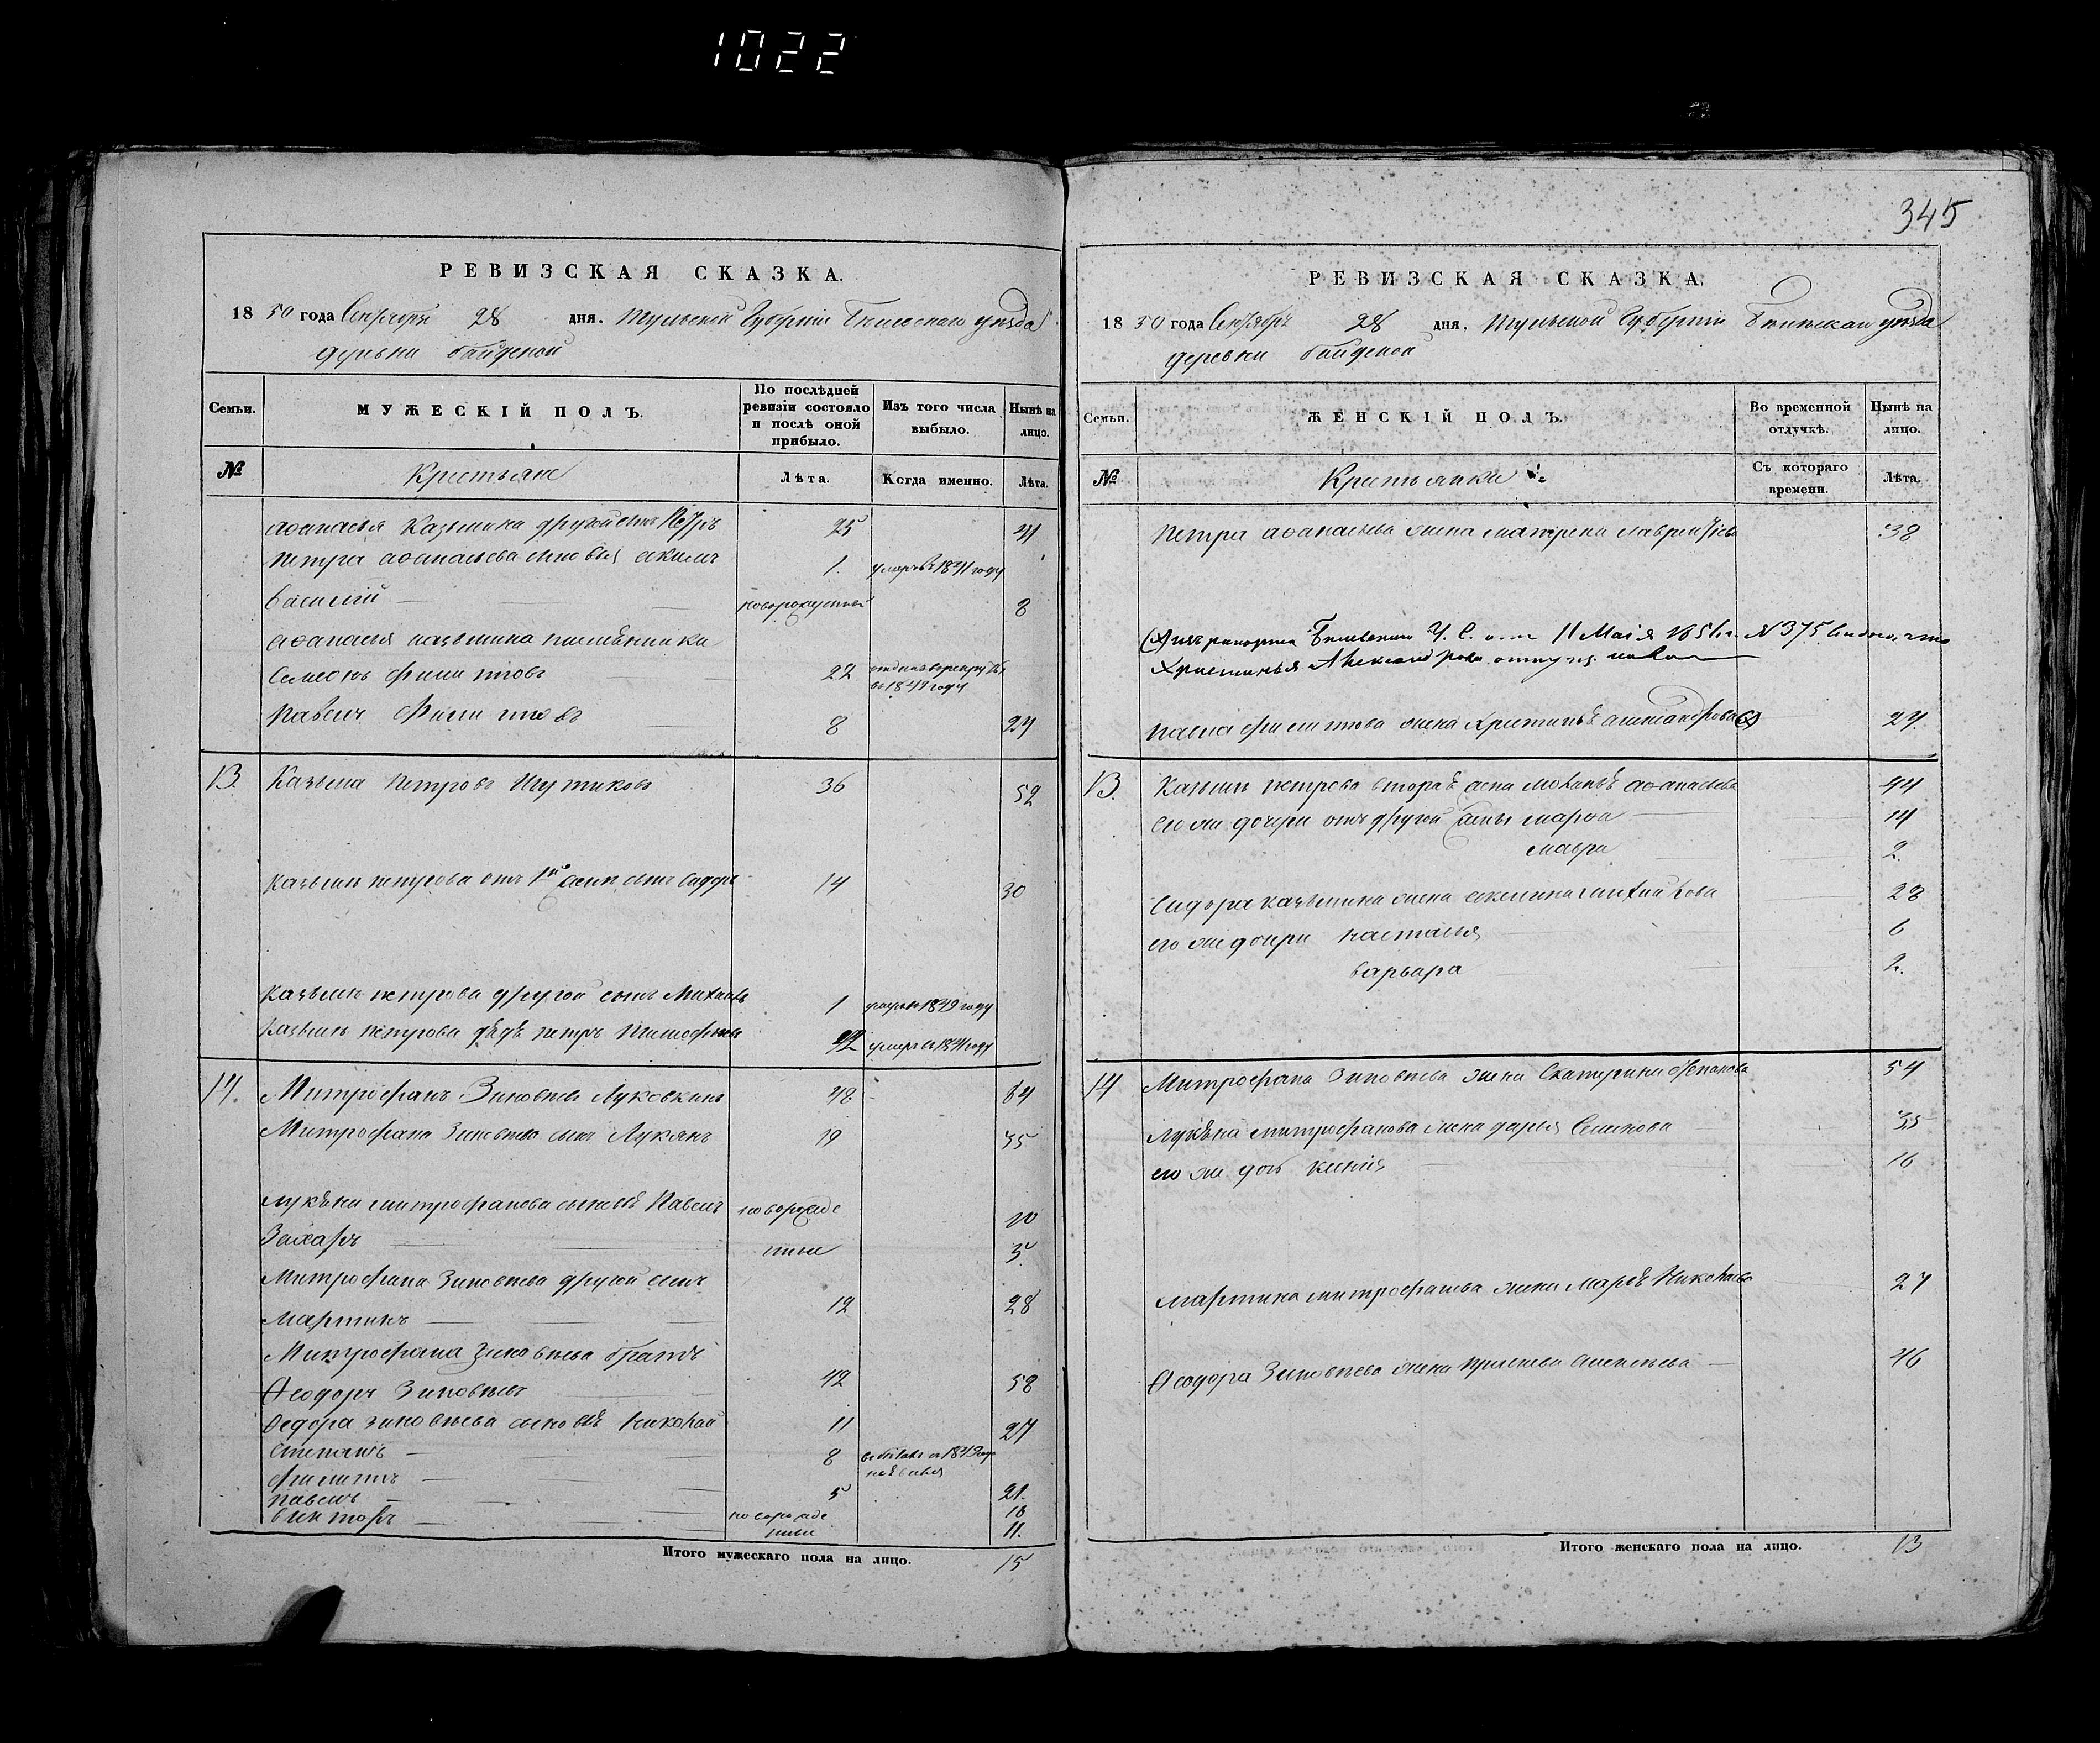 1022
345
РЕВИЗСКАЯ СКАЗКА.
1850 года Сентября 28 дня. Тульской Губерніи Бѣлевскаго уѣзда
деревни Гайденой
Семьи. МУЖЕСКІЙ ПОЛЪ. По послѣдней ревизіи состояло и послѣ оной прибыло. Изъ того числа выбыло. Нынѣ на лицо.
№ Крестьяне Лѣта. Когда именно. Лѣта.
Аѳанасья Казьмина другой сынъ Петръ 25 41
Петра Аѳанасьева сыновья Акимъ 1. умеръ въ 1841 году
Василій новорожденный 8
Аѳанасья Казьмина племѣнники
Семенъ Филиповъ 22 въ 1849 году
Павелъ Филиповъ 8 24
13. Казьма Петровъ Шутиковъ 36 52
Казьмы Петрова отъ 1й жены сынъ Сидоръ 14 30
Казьмы Петрова другой сынъ Михаила 1 умеръ 1849 году
Казьмы Петрова дѣдъ Петръ Тимофеевъ 92 умеръ въ 1841 году
14. Митрофанъ Зиновьевъ Луковкинъ 48 64
Митрофана Зиновьева сынъ Лукьянъ 19 35
Лукьяна Митрофанова сыновья Павелъ новорожде 10
Захаръ нные 3.
Митрофана Зиновьева другой сынъ
Мартинъ 12 28
Митрофана Зиновьева братъ
Ѳеодоръ Зиновьевъ 42 58
Ѳедора Зиновьева сыновья Николай 11 27
Степанъ 8 1849
Филиппъ 5 21.
Павелъ новорожде 16
Викторъ нные 11.
Итого мужескаго пола на лицо. 15
РЕВИЗСКАЯ СКАЗКА.
1850 года Сентября 28 дня. Тульской Губерніи Бѣлевскаго уѣзда
деревни Гайденой
Семьи. ЖЕНСКІЙ ПОЛЪ. Во временной отлучкѣ. Нынѣ на лицо.
№ Крестьянки Съ котораго времени. Лѣта.
Петра Аѳанасьева жена Матрена Лаврентьева 38
Изъ рапорта Бѣлевскаго У. С. отъ 11 Маія 1851 г. N 375 видно, что
Христинья Александрова отпущена
Павла Филипова жена Христинья Александрова 24.
13. Казьмы Петрова вторая жена Меланья Аѳанасьева 44
его же дочери отъ другой жены Марѳа 14
Мавра 2.
Сидора Казьмина жена Акилина Михайлова 28
его же дочери Настасья 6
Варвара 2.
14 Митрофана Зиновьева жена Екатерина Степанова 54
Лукьяна Митрофанова жена Дарья Семенова 35
его же дочь Ксенія 16
Мартина Митрофанова жена Марья Николаева 27
Ѳеодора Зиновьева жена 46
Итого женскаго пола на лицо. 13